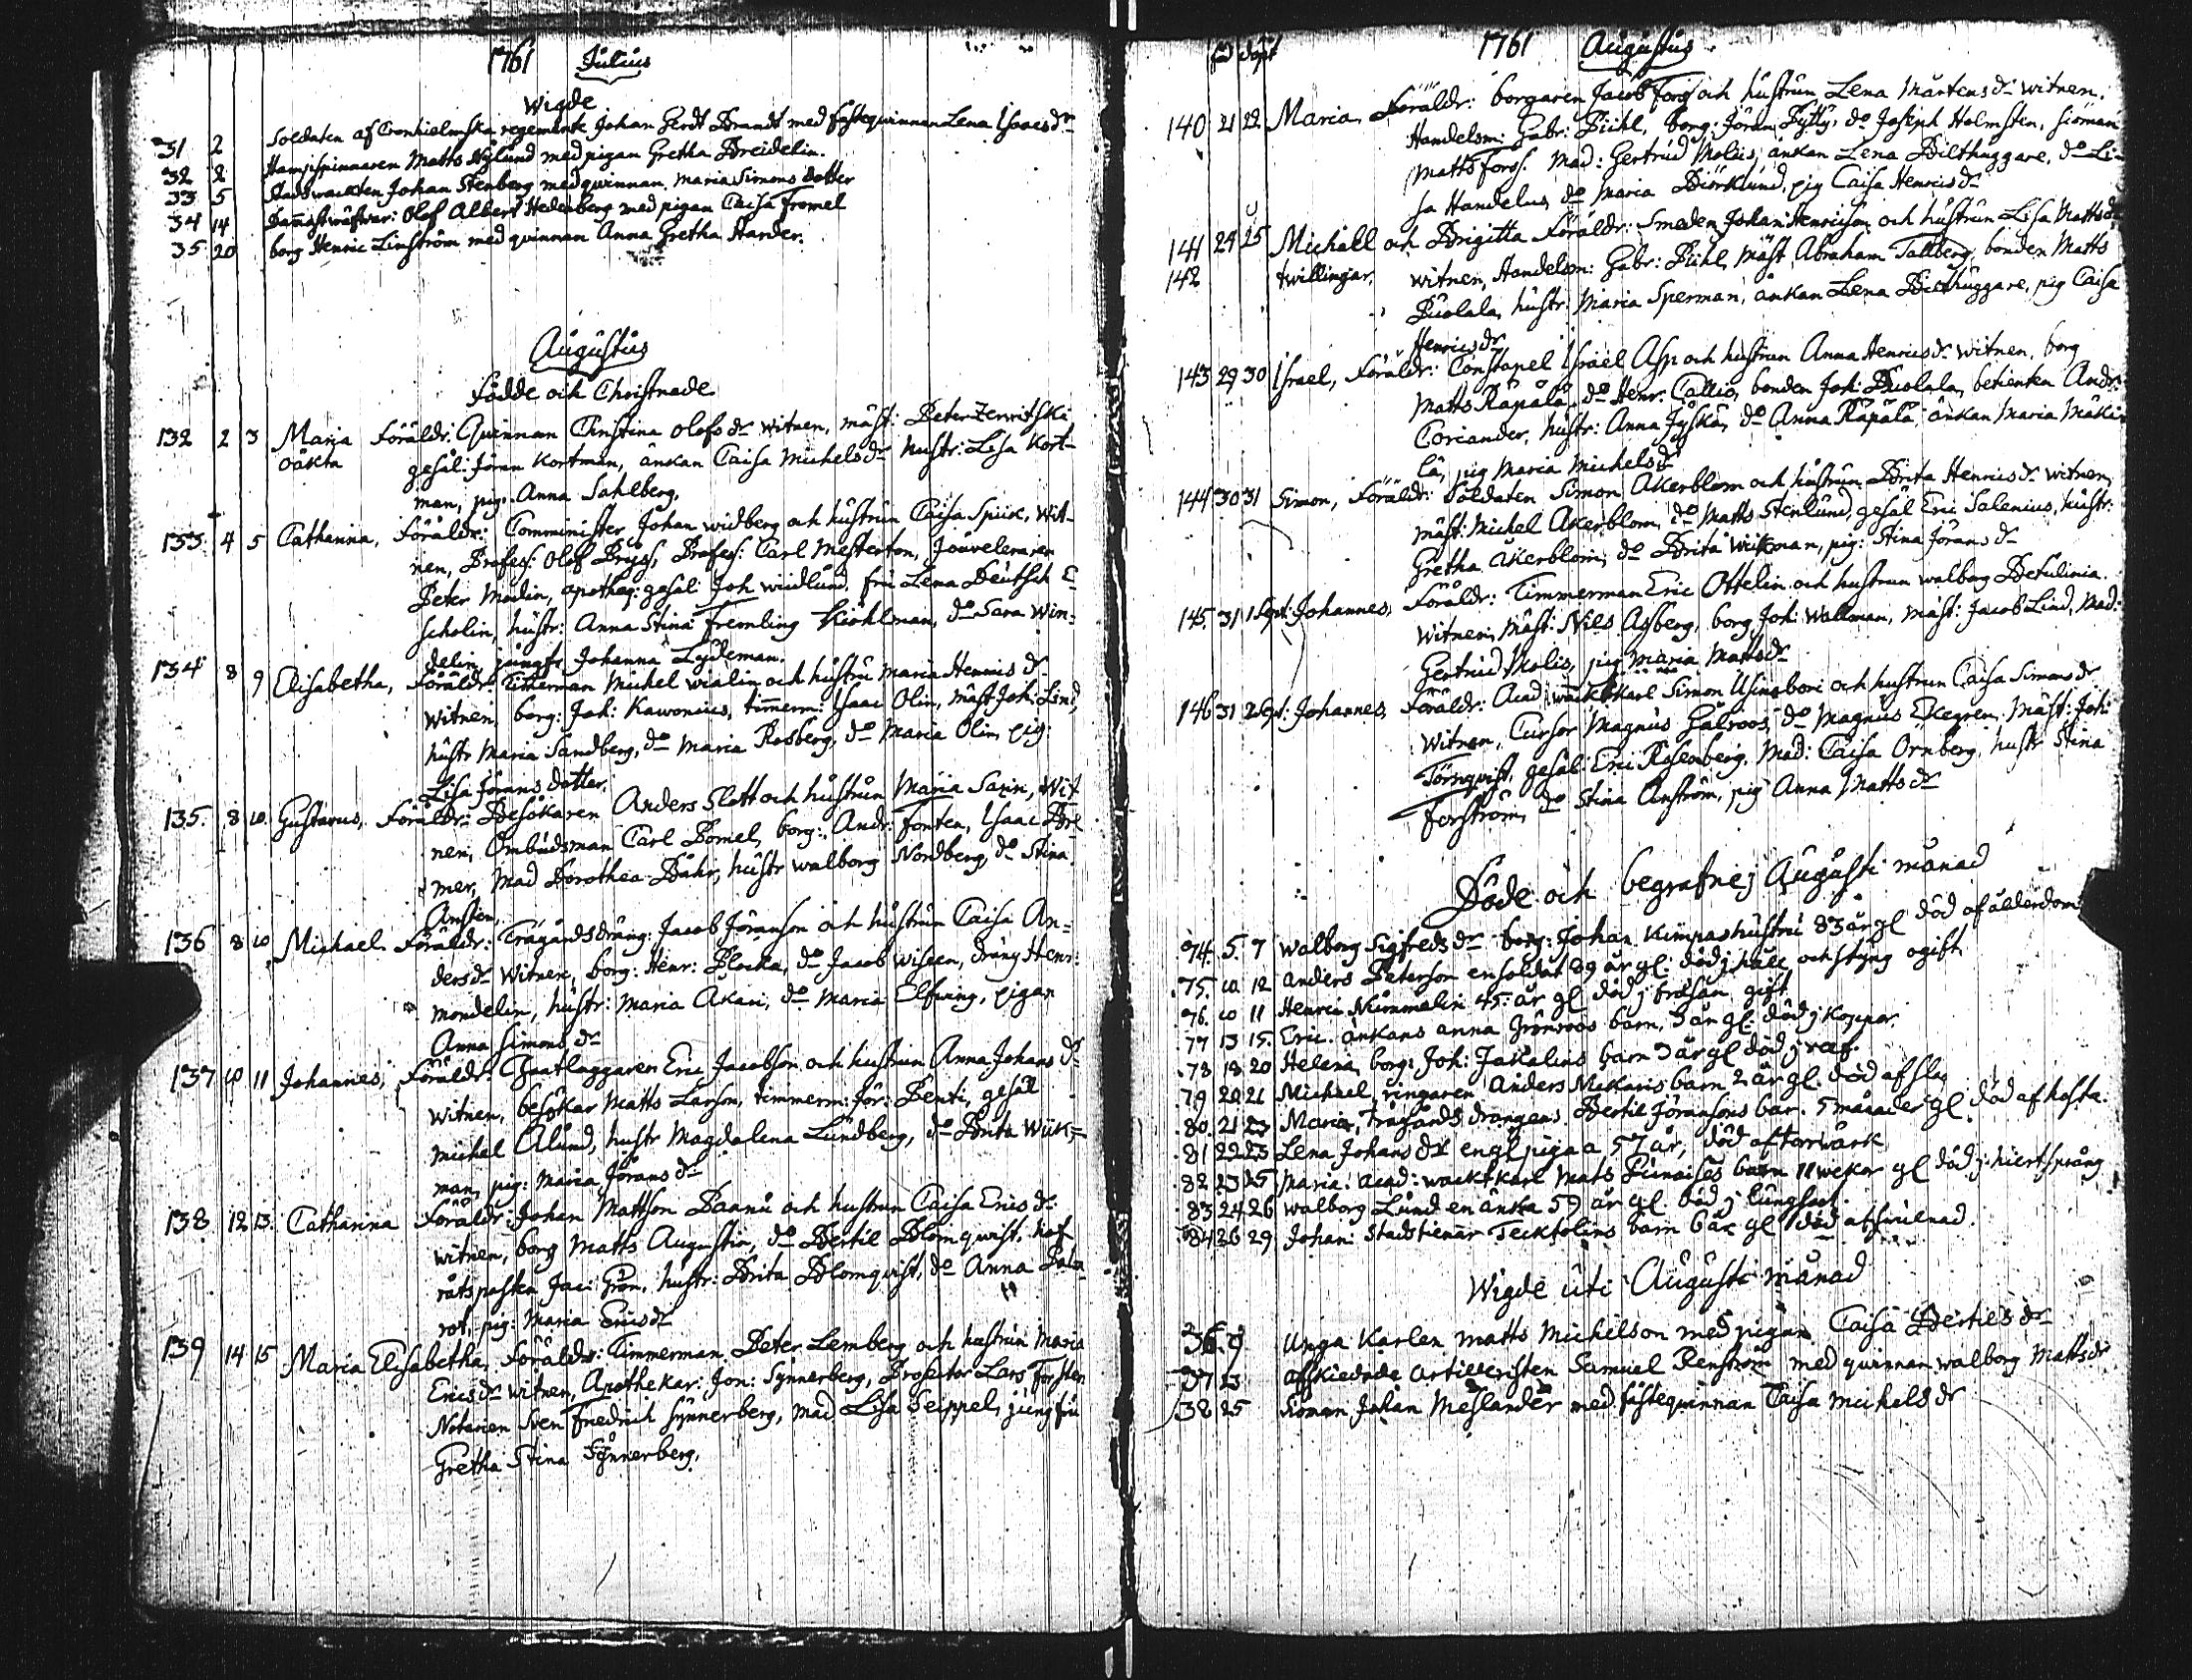 1761 Julius
Wigde
31 2 Soldaten af Cronhielmska regemente Johan Gerdt Brandt med fästeqvinnan Lena Isaacs dr
32 2 Hampspinnaren Matts Nylund med pigan Gretha Breidelin.
33 5 Stadswackten Johan Stenberg med qvinnan Maria Simons dotter
34 14 Damastwäfwar: Olof Albert Hedenberg med pigan Caisa Fromel
35 20 borg Henric Linström med qvinnan Anna Gretha Harder.
Augustus
Födde och Christnade
132 2 3 Maria Föräldr: Qvinnan Christina Olofs dr witnen, mäst: Peter Zerwitski
oäkta gesäl: Jöran Kortman, änkan Caisa Michels dr hustr: Lisa Kort-
man, pig: Anna Sahlberg.
133 4 5 Catharina, Föräldr: Comminister Johan Widberg och hustrun Caisa Spiik, Wit-
nen, Profess: Olof Pryss, Profess: Carl Mesterton, Jouveleraren
Peter Modin, apotheq: gesäl Joh Widlund, fru Lena Deutsch
Scholin, hustr: Anna Stina Fremling Kiöhlman, do Sara Win-
delin, jungfr Johanna Lydeman.
134 8 9 Elisabetha, Föräldr: Timerman Michel Wialin och hustru Maria Henrics dr
Witnen, borg: Joh: Kawonius, timerm: Isaac Olin, mäst Joh: Lind,
hustr Maria Sandberg, do Maria Rosberg, do Maria Olin, pig:
Lisa Jörans dotter.
135. 8 10. Gustavus, Föräldr: Besökaren Anders Slott och hustrun Maria Saxin, Wit
nen, Ombudsman Carl Bomel, borg: Andr: Fonten, Isaac Bre
mer, Mad Dorothea Bähr, hustr Walborg Nordberg, do Stina
Ansten.
136 8 10 Michael Föräldr: Trägårdsdräng: Jacob Jöranson och hustrun Caisa An=
ders dr Witnen, borg: Henr: Plocka, do Jacob Wiseen, dräng Henr:
Mondelin, hustr: Maria Akari, do Maria Elfwing, pigan
Anna Simons dr
137 10 11 Johannes, Föräldr: Eric Jacobson och hustrun Anna Johans dr
Witnen, besökar Matts Larson, timmerm: Jör: Penti, gesäl
Michel Alund, hustr Magdalena Lundberg, do Brita Wiik=
man, pig: Maria Jörans dr
138. 12 13. Catharina Föräldr: Johan Mattson Paanu och hustrun Caisa Erics dr
witnen, borg Matts Augustin, do Bertil Blomqwist, hof
rätsposten Jac: Grön, hustr: Brita Blomqvist, do Anna Pala
rot, pig: Maria Erics dr
139 14 15 Maria Elisabetha, Föräldr: Timmerman Peter Lemberg och hustrun Maria
Erics dr witnen, Apothekar: Jon: Synnerberg, Prosector Lars Forsten
Notarien Sven Friedrich Synnerberg, Mad Lisa Seippel, jungfru
Gretha Stina Synnerberg.
fö döpt 1761 Augustus
140 21 22 Maria, Föräldr: borgaren Jacob Forss och hustrun Lena Mårtens dr witnen.
Handelsm: Gabr: Pihl, borg: Jöran Pytty, do Joseph Holmsten, siöman
Matts Forss. Mad: Gertrud Molis, änkan Lena Bilthuggare, do Li-
sa Handelus, do Maria Biörklund, pig Caisa Henrics dr
141 24 25 Michaël och Brigitta Föräldr: Smeden Johan Henricson och hustrun Lisa Matts dr
142 twillingar, witnen, Handelsm: Gabr: Pihl, Mäst Abraham Tallberg, bonden Matts
Puolala, hustr: Maria Sperman, änkan Lena Bilthuggare, pig Caisa
Henrics dr
143 29 30 Israel, Föräldr: Constapel Israel Asp och hustrun Anna Henrics dr witnen, borg
Matts Räpälä, do Henr: Callio, bonden Joh: Puolala, betienten Andr:
Coriander, hustr: Anna Jyskä, do Anna Räpälä änkan Maria Mäki-
lä, pig Maria Michels dr
144 30 31 Simon, Föräldr: Soldaten Simon Åkerblom och hustrun Brita Henrics dr witnen,
mäst: Michel Åkerblom, do Matts Stenlund, gesäl Eric Salenius, hustr:
Gretha Åkerblom, do Brita Wikman, pig: Stina Jörans dr
145. 31 1 Sept: Johannes, Föräldr: Timmerman Eric Ottelin och hustrun Walborg Betulinia.
Witnen, mäst: Nils Asberg, borg Joh: Wallman, mäst: Jacob Lind, Mad:
Gertrud Molis, pig Maria Matts dr
146 31 2 Sept: Johannes, Föräldr: Acad: wacktkarl Simon Usingbori och hustrun Caisa Simons dr
Witnen, Cursor Magnus Galroos, do Magnus Ekegren, Mäst: Joh:
Törnqvist, gesäl: Eric Rosenberg, Mad: Caisa Örnberg, hustr Stina
Forström, do Stina Anström, pig Anna Matts dr
Döde och begrafne j Augusti månad
74. 5. 7 Walborg Sigfreds dr borg: Johan Kimpas hustru 83 år gl död af ålderdom
75. 10 12 Anders Peterson en soldat 89 år gl: död j håll och styng ogift
76. 10 11 Henric Nummelin 45. år gl död j frosan gift
77 13 15. Eric. änkans Anna Grönroos barn, 3 år gl. död j koppor.
78 18 20 Helena, borg: Joh: Jakalins barn 3 år gl död j
79 20 21 Michael, ringaren Anders Mickaris barn 2 år gl. död af slag
80. 21 23 Maria, Trägårds drängens Bertil Jöransons bar. 5 månader gl död af hosta.
81 22 23 Lena Johans dr en gl piga a 57 år, död af torwärk
82 23 25 Maria. acad: wacktkarl Mats barn 11 wekor gl död j: hiertsprång
83 24 26 Walborg Lund en änka 59 år gl. död j lungsot.
84 26 29 Johan: Stadstienar Tecktolins barn 6 år gl död af swulnad.
Wigde uti Augusti månad
36. 9 Unga Karlen Matts Michelson med pigan Caisa Bertils dr
37 23 afskiedade artilleristen Samuel Renström med qvinnan Walborg Matts dr
38 25 Siöman Johan Meslander med fästeqvinnan Caisa Michels dr